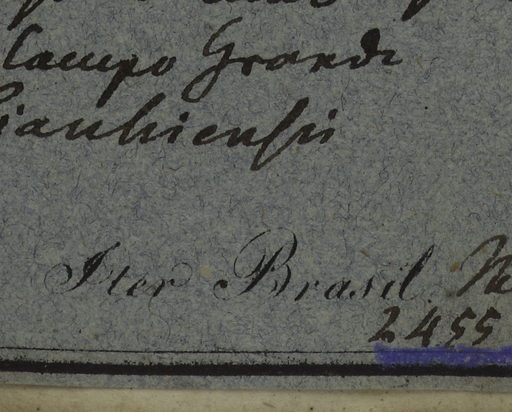 Campo Grande
iauhiensis
Iter Brasil.
2455